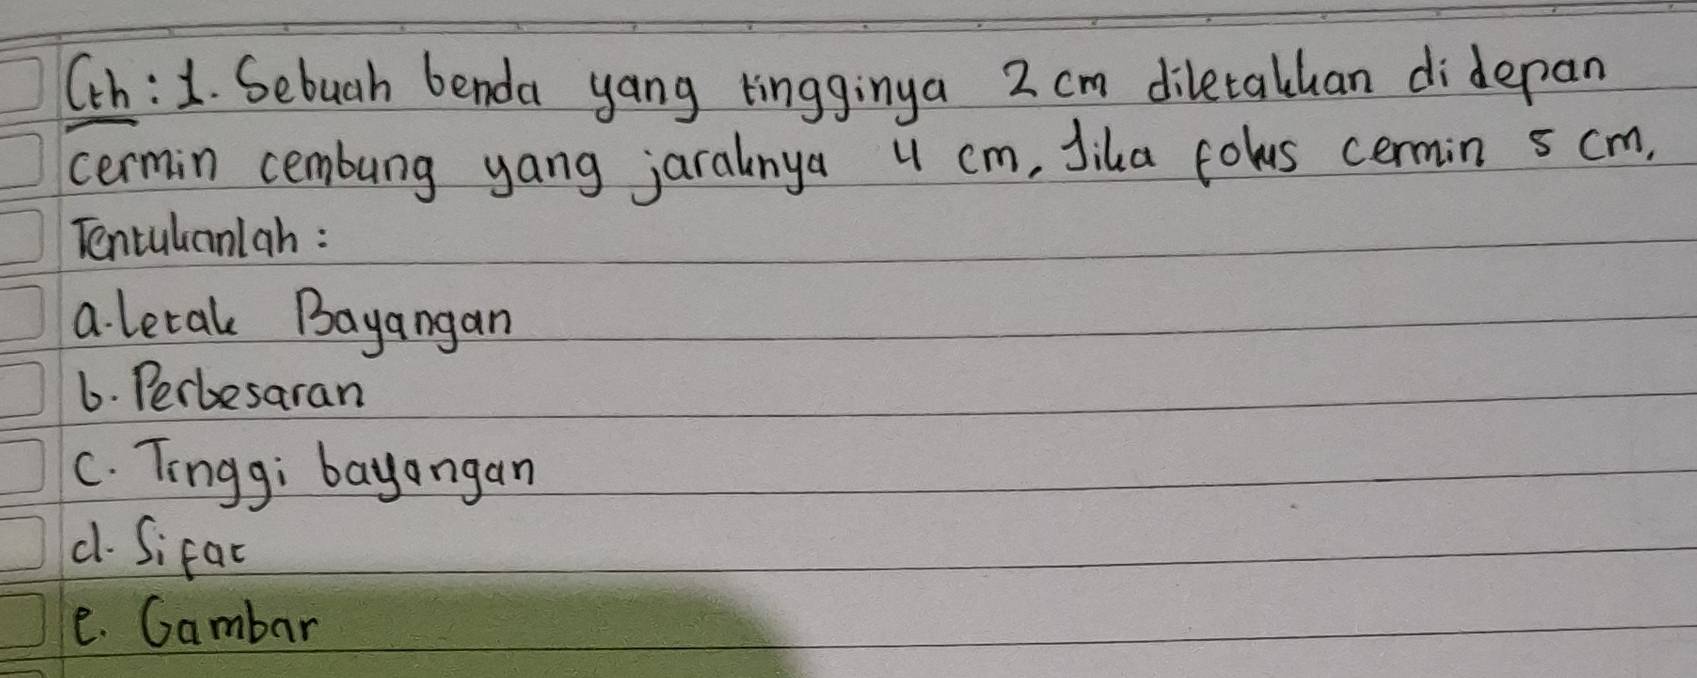 Cth : 1. Sebuah benda yang tingginya 2 cm diletakkan di depan
cermin cembung yang jaraknya 4 cm. Jika fokus cermin 5 cm.
Tentukanlah :
a. letak Bayangan
b. Perbesaran
c. Tinggi bayangan
d. Sifat
e. Gambar